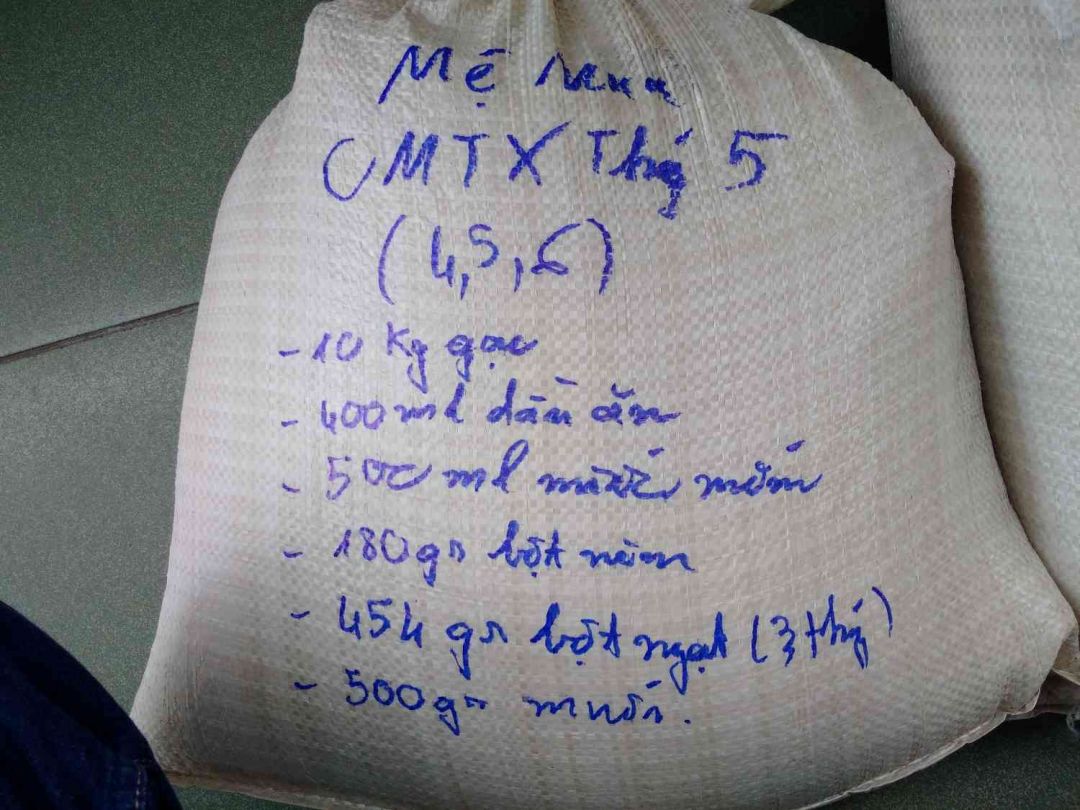 Mệ
MTX Thg 5
(4,5,6)
- 10 Kg gạo
- 400 ml dầu ăn
- 500 ml nước mắm
- 180gr bột nêm
- 454 gr bột ngọt (3 thg)
- 500gr muối.